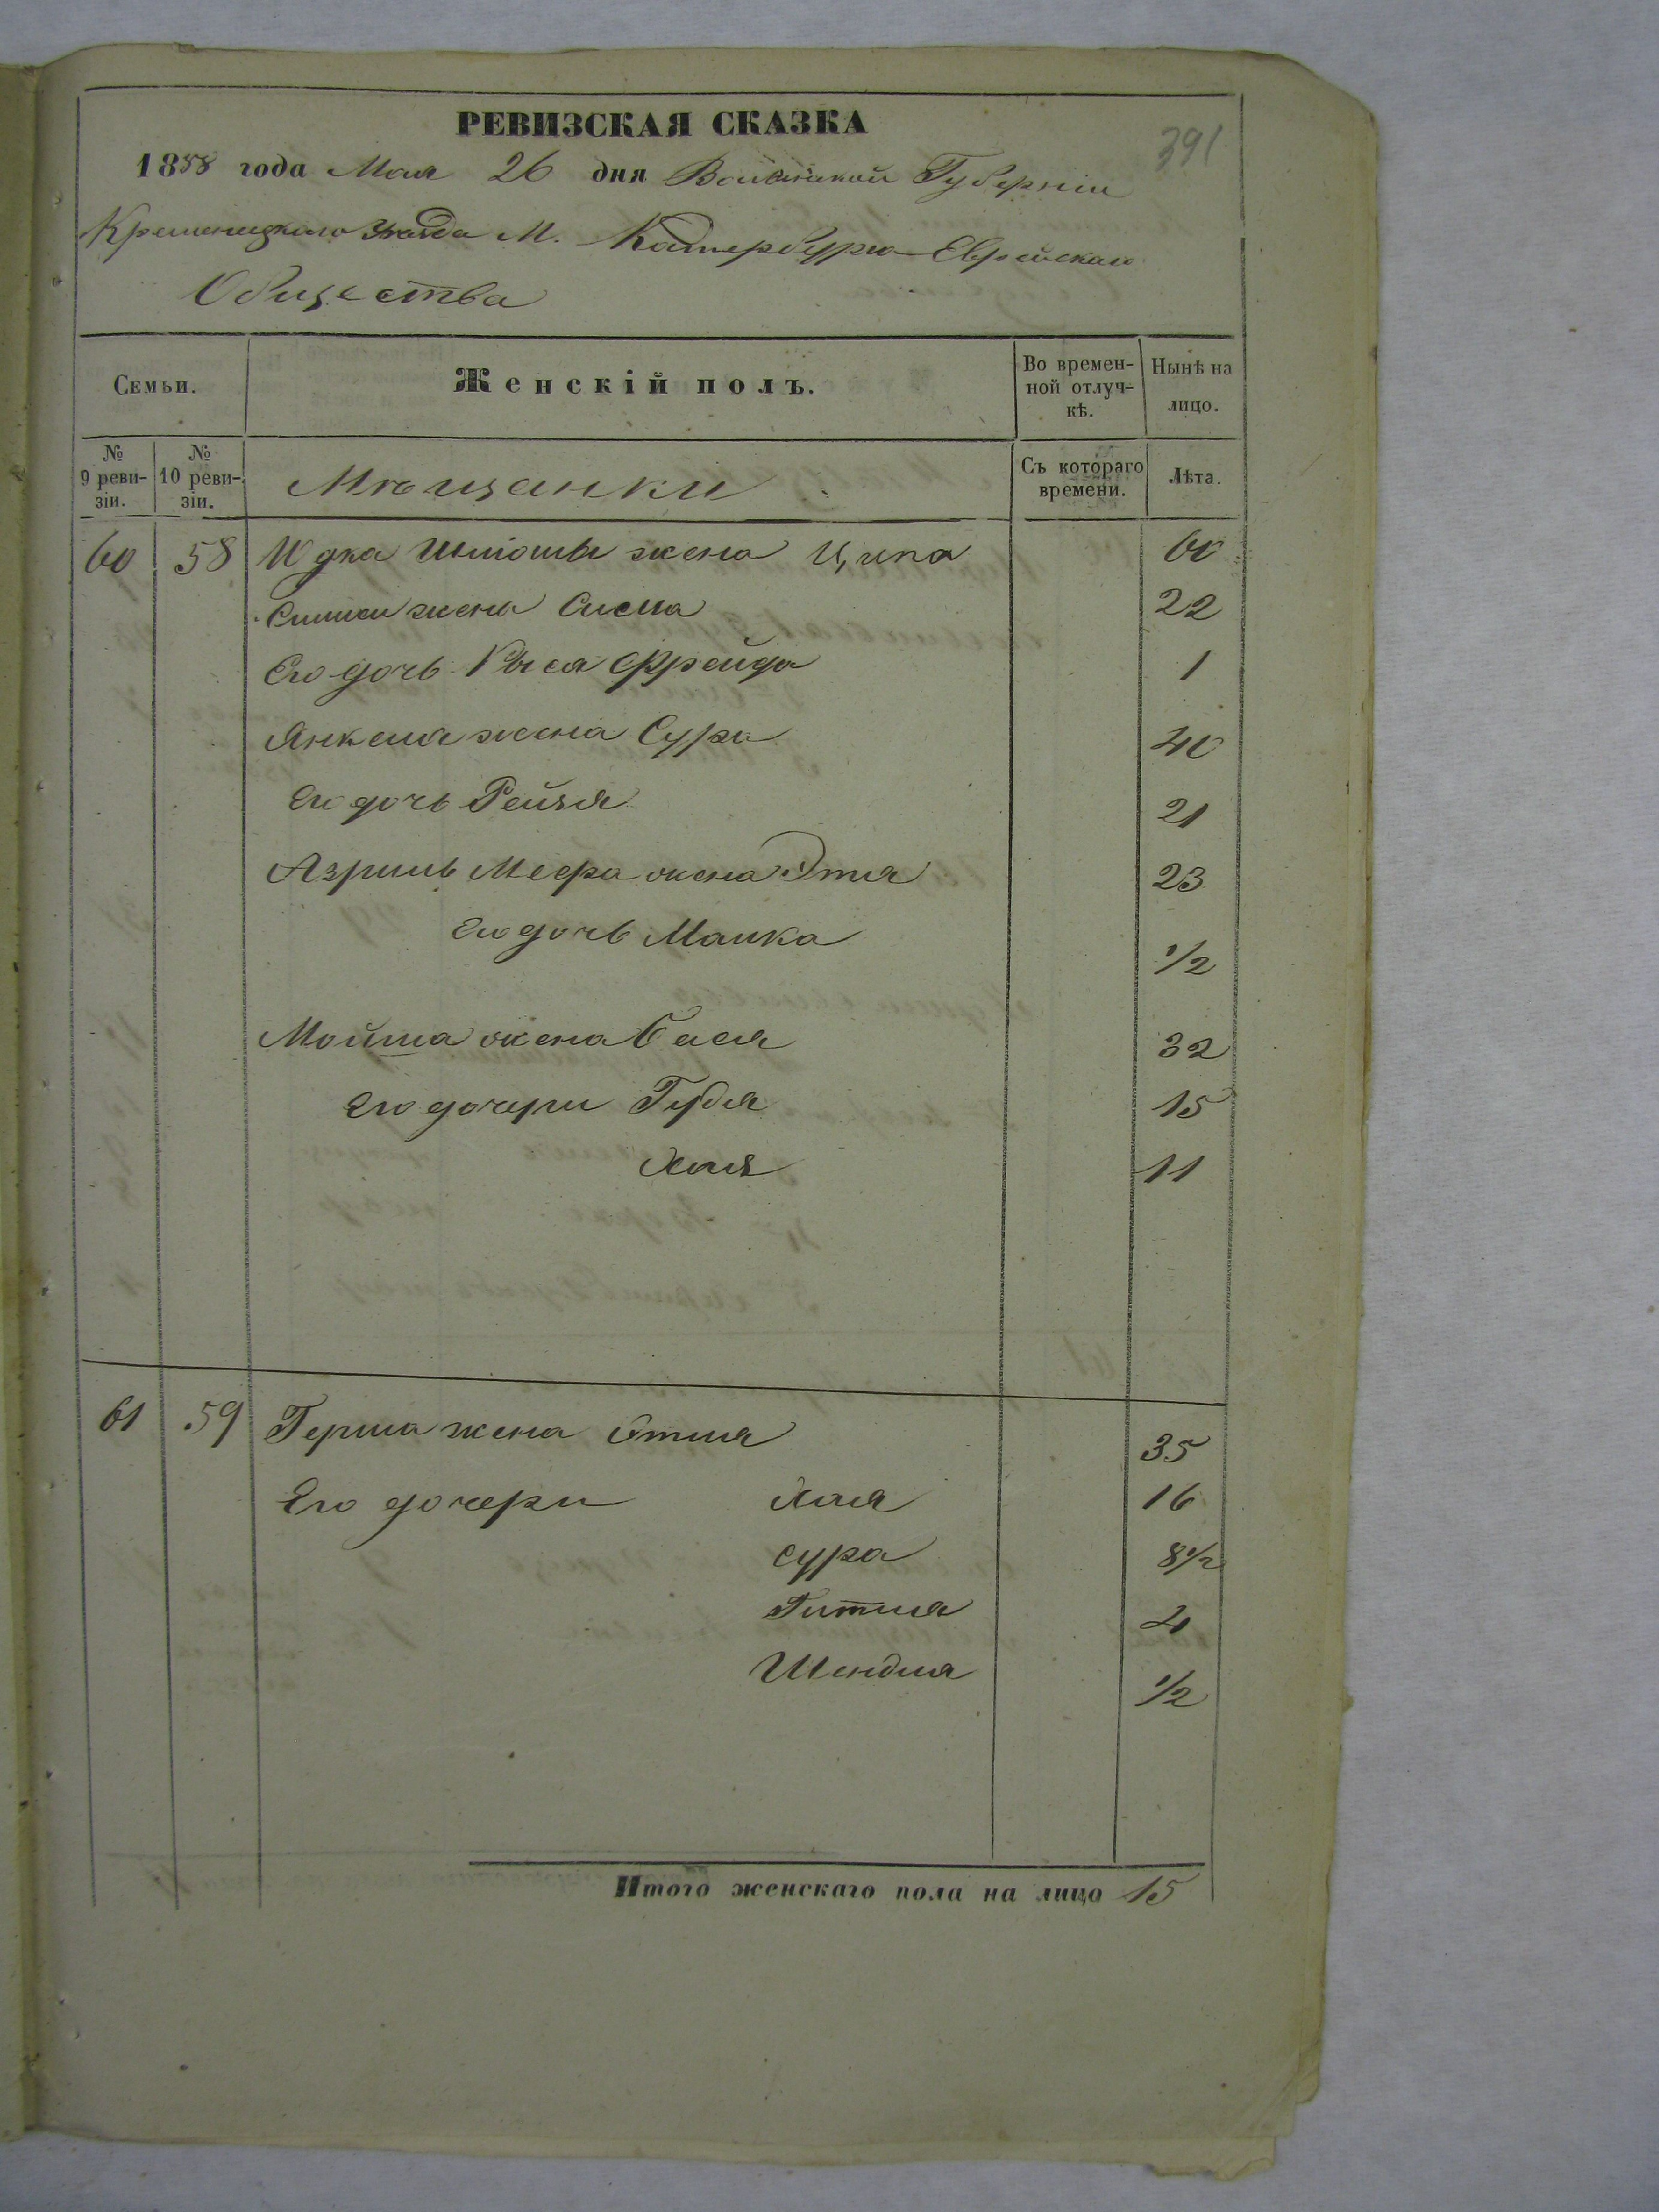 РЕВИЗСКАЯ СКАЗКА
391
1858 года Мая 26 дня Волынской Губерніи
Кременецкаго Уѣзда М. Катербурга Еврейскаго
Общества
Семьи.
Женскій полъ.
Во времен-
ной отлуч-
кѣ.
Нынѣ на
лицо.
№
9 реви-
зіи.
№
10 реви-
зіи.
Мѣщанки
Съ котораго
времени.
Лѣта.
60 58 Юдка Шліомы жена Ципа 60
жена Сисма 22
Его дочь Рыся Фрейда 1
Янкеля жена Сура 40
Его дочь Рейзя 21
Азриль Меера жена Этя 23
Его дочь Малка 1/2
Мойша жена Бася 32
Его дочери Гудя 15
Хая 11
61 59 Герша жена Этля 35
Его дочери Хая 16
Сура 8 1/2
Гитля 4
Шендля 1/2
Итого женскаго пола на лицо 15